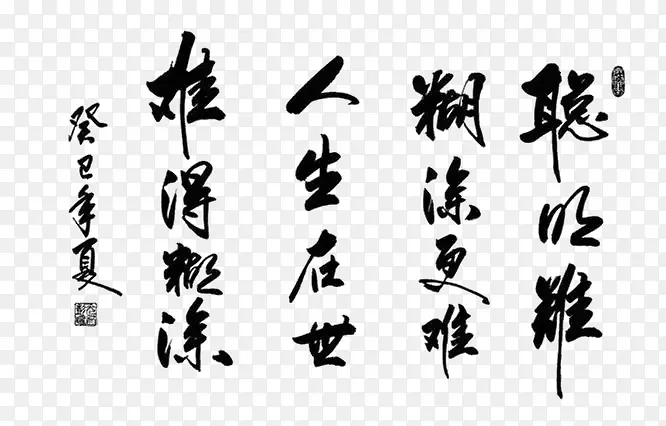 聪明难
糊涂更难
人生在世
难得糊涂
癸巳年夏